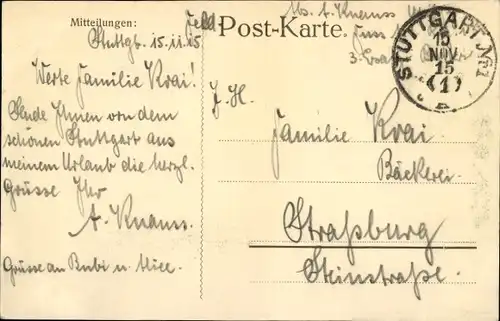 Mitteilungen:
Post-Karte.
Abs. A. Knauss
STUTTGART Nr. 1
15
NOV
15
(1)
Stuttgt. 15.11.15
Werte Familie Krai!
Sende Ihnen von dem
schönen Stuttgart aus
meinem Urlaub die herzl.
Grüsse Ihr
A. Knauss.
Grüsse an Bubi u.
Familie Krai.
Bäckerei.
Straßburg
Steinstraße.